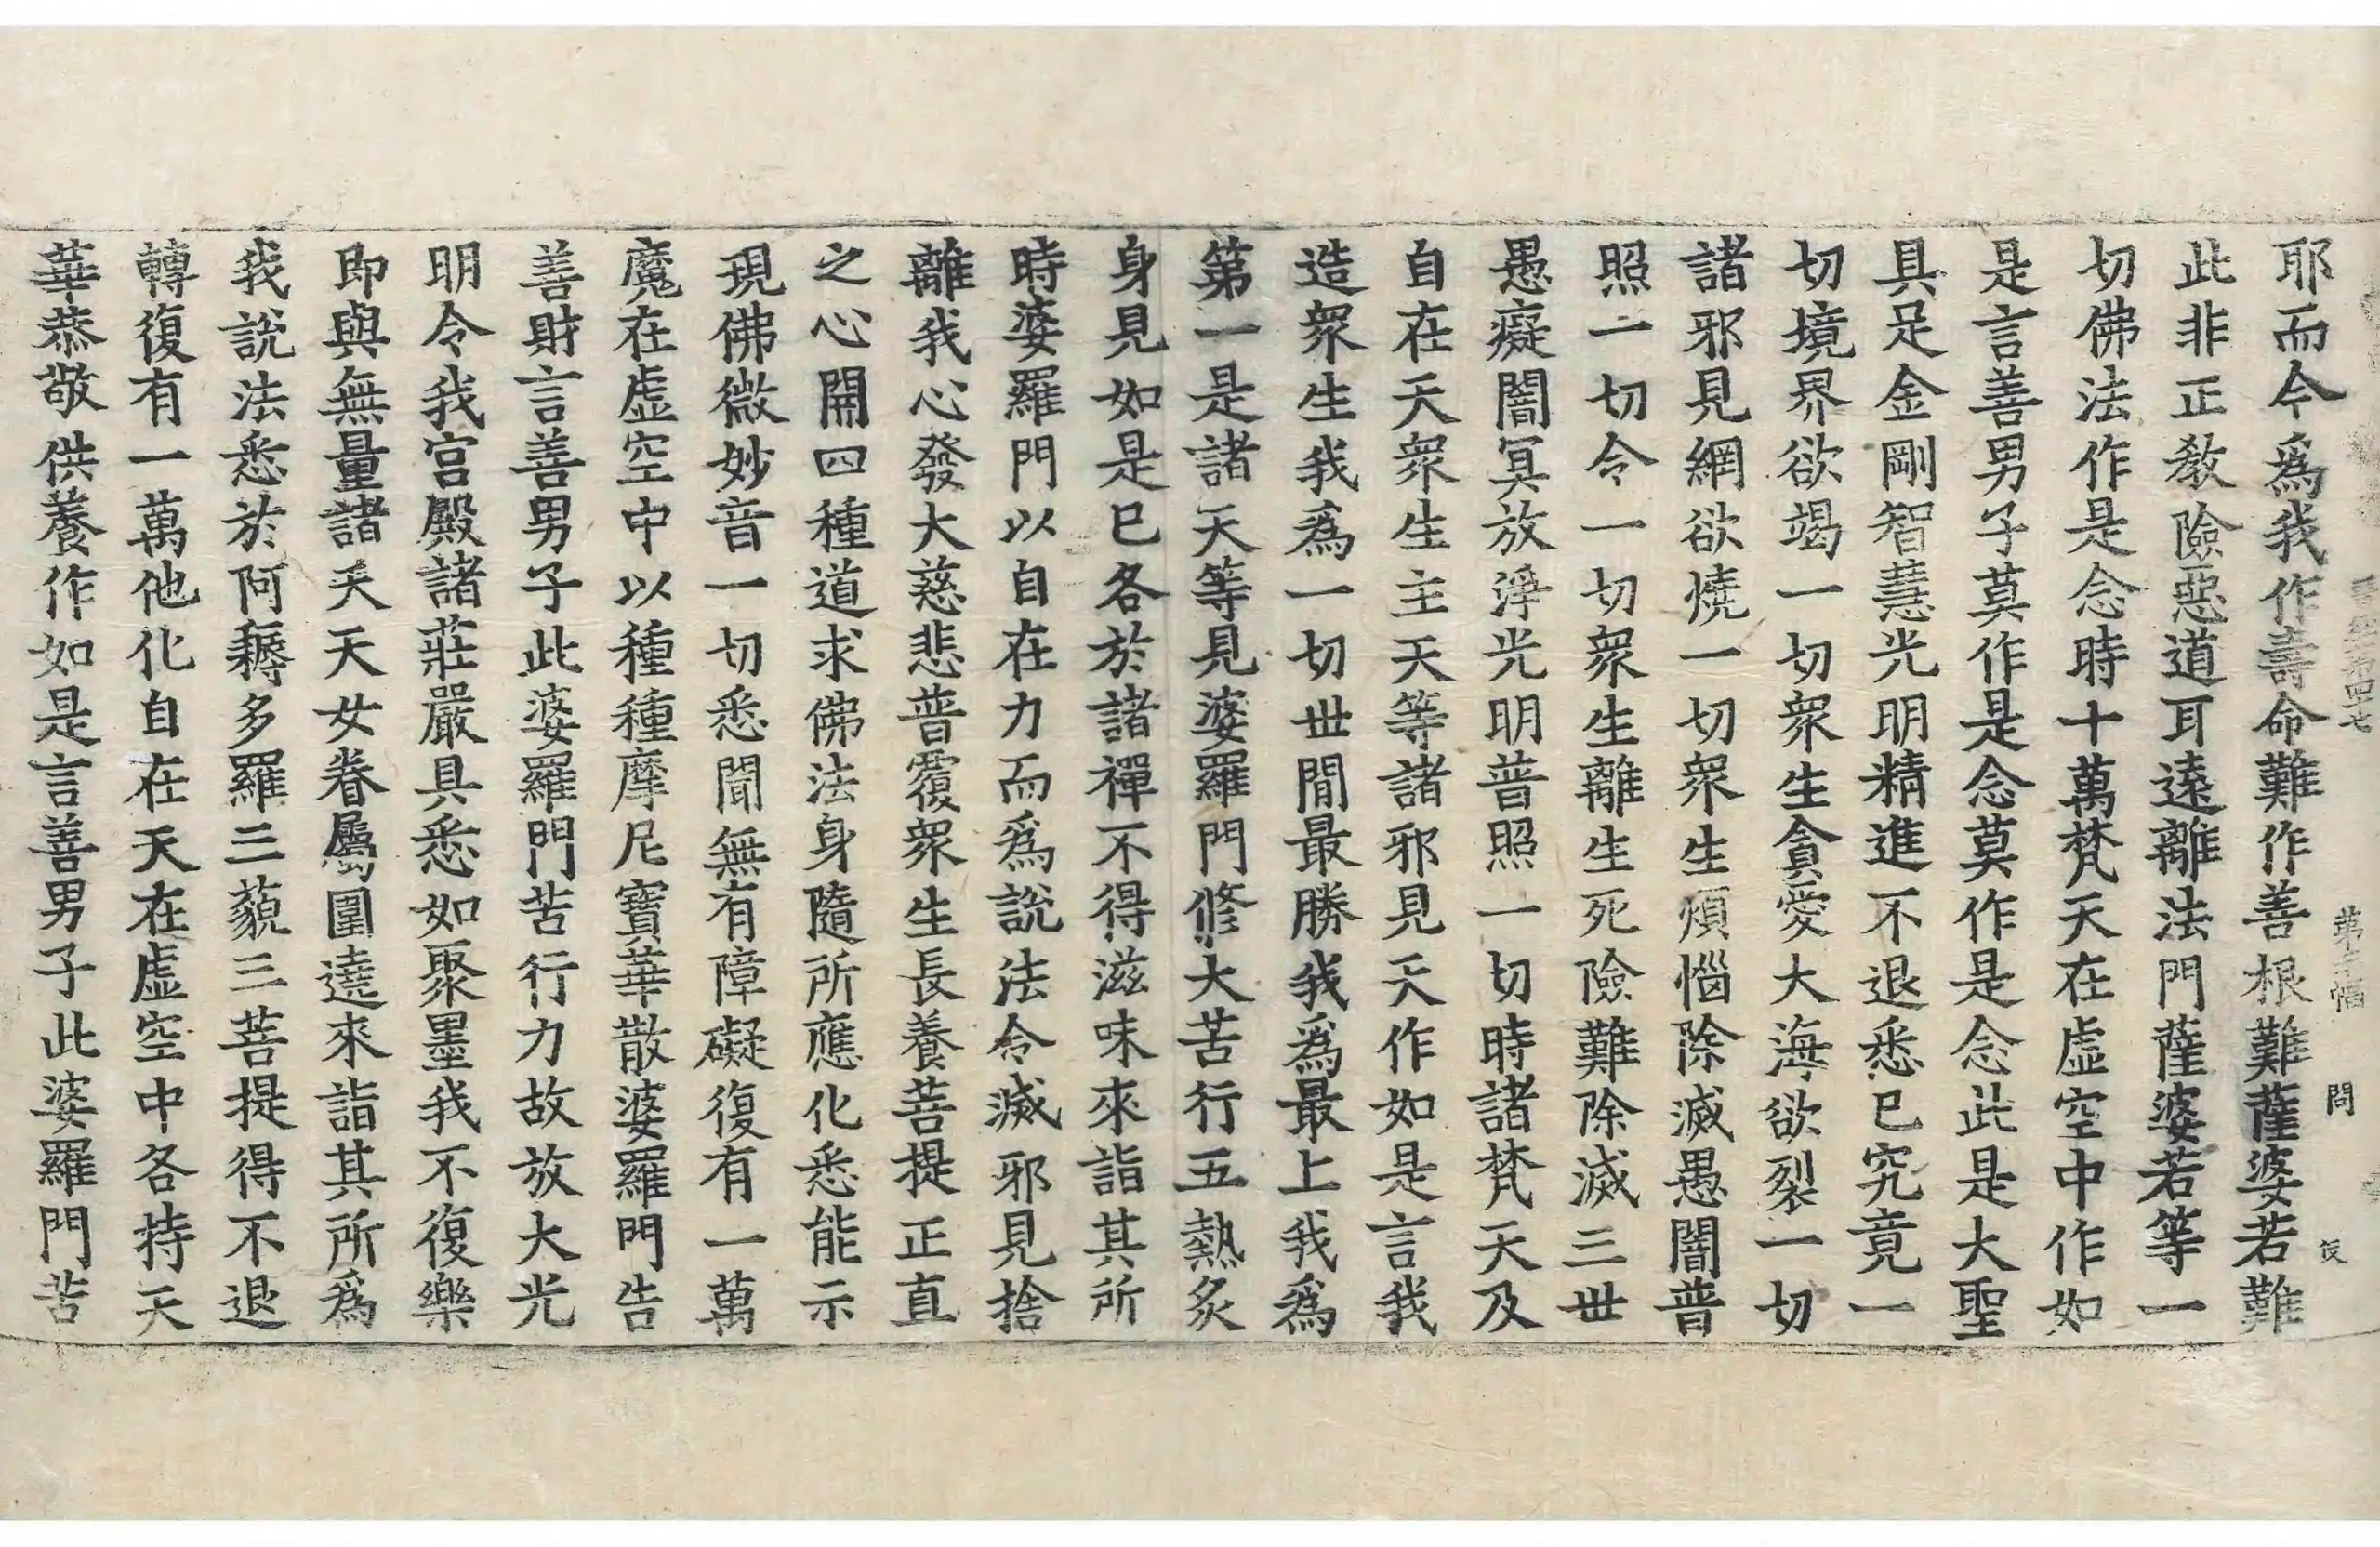 耶而今爲我作壽命難作善根難薩婆若難
此非正教險惡道耳遠離法門薩婆若等一
切佛法作是念時十萬梵天在虛空中作如
是言善男子莫作是念莫作是念此是大聖
具足金剛智慧光明精進不退悉已究竟一
切境界欲竭一切衆生貪愛大海欲裂一切
諸邪見網欲燒一切衆生煩惱除滅愚闇普
照一切令一切衆生離生死險難除滅三世
愚癡闇冥放淨光明普照一切時諸梵天及
自在天衆生主天等諸邪見天作如是言我
造衆生我爲一切世間最勝我爲最上我爲
第一是諸天等見婆羅門修大苦行五熱炙
身見如是已各於諸禪不得滋味來詣其所
時婆羅門以自在力而爲說法令滅邪見捨
離我心發大慈悲普覆衆生長養菩提正直
之心開四種道求佛法身隨所應化悉能示
現佛微妙音一切悉聞無有障礙復有一萬
魔在虛空中以種種摩尼寶華散婆羅門告
善財言善男子此婆羅門苦行力故放大光
明令我宮殿諸莊嚴具悉如聚墨我不復樂
即與無量諸天天女眷屬圍遶來詣其所爲
我說法悉於阿耨多羅三藐三菩提得不退
轉復有一萬他化自在天在虛空中各持天
華恭敬供養作如是言善男子此婆羅門苦